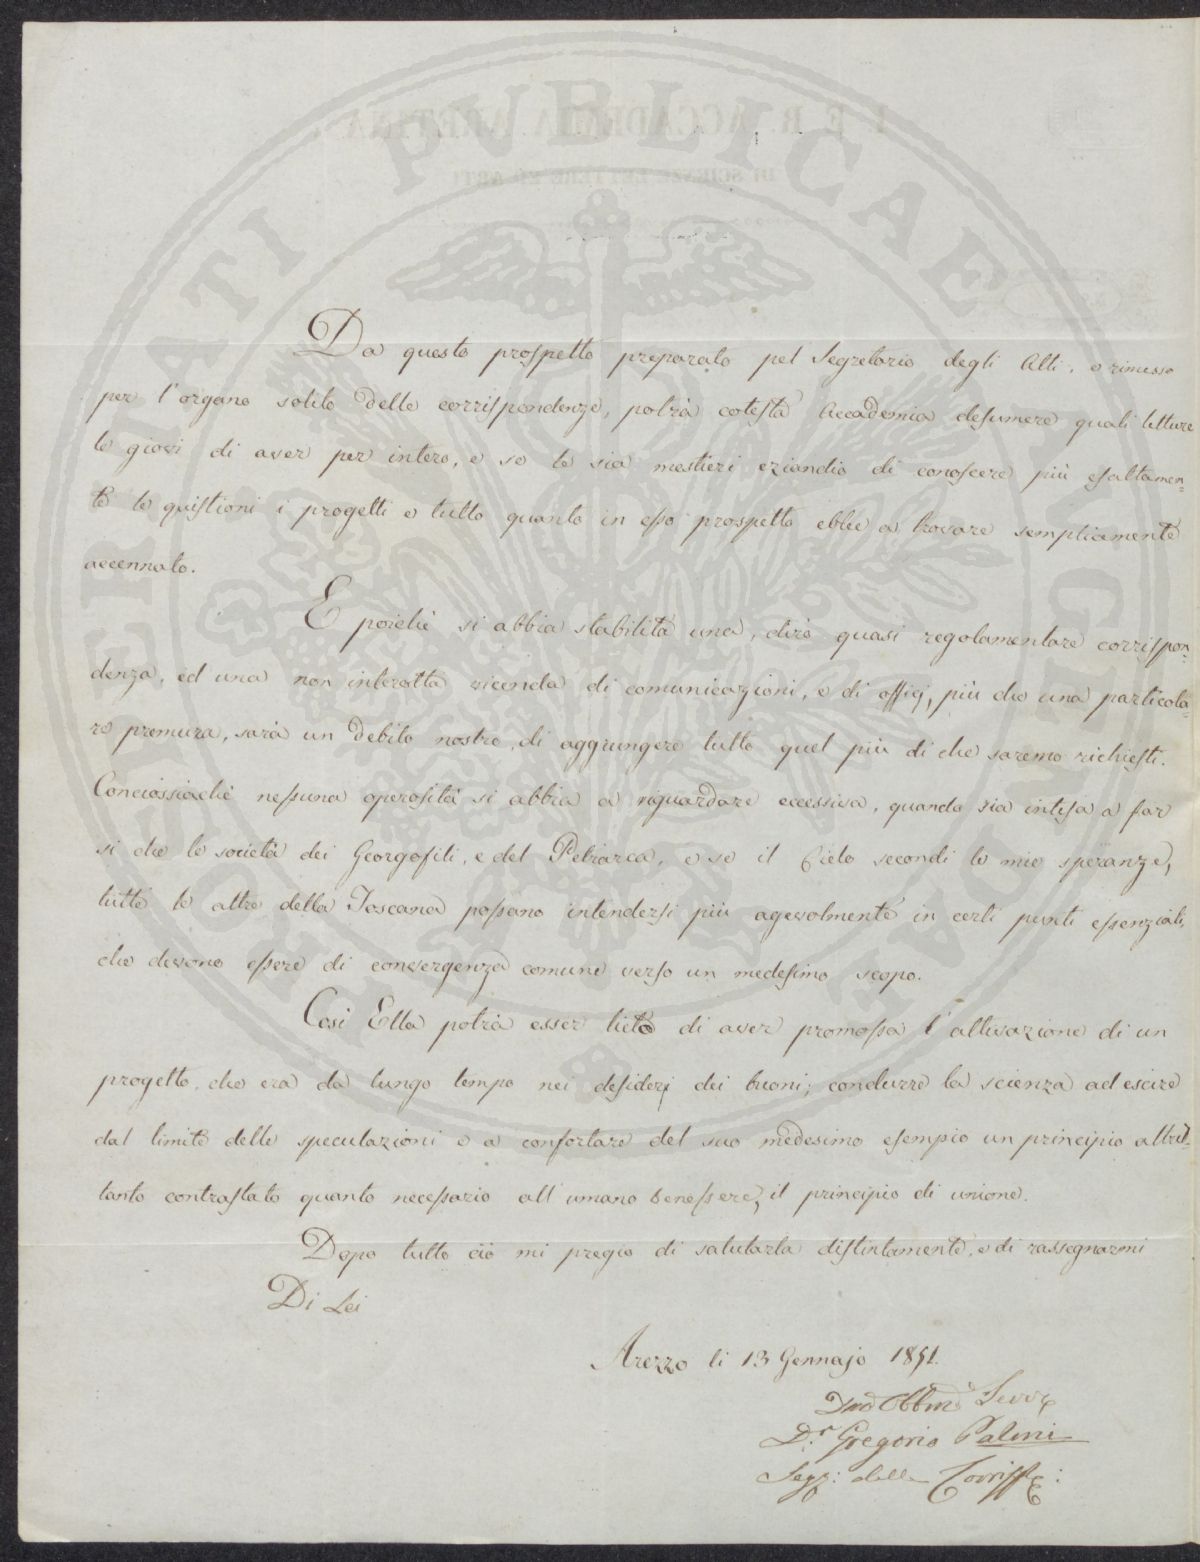 Da questo prospetto preparato pel Segretario degli Atti, e rimesso
per l'organo solito delle corrispondenze, potrà cotesta Accademia desumere quali letture
le giovi di aver per intero, e se le sia mestieri eziandio di conoscere più esattamen-
te le quistioni i progetti e tutto quanto in esso prospetto ebbe a trovare semplicemente
accennato.
E poichè si abbia stabilita una, dirò quasi regolamentare corrispon-
denza, ed una non interotta vicenda di comunicazioni, e di officj, più che una particola-
re premura, sarà un debito nostro, di aggiungere tutto quel più di che saremo richiesti.
Conciossiachè nessuna operosità si abbia a riguardare eccessiva, quando sia intesa a far
sì che le società dei Georgofili, e del Petrarca, e se il Cielo secondi le mie speranze,
tutte le altre della Toscana possano intendersi più agevolmente in certi punti essenziali,
che devono essere di convergenza comune verso un medesimo scopo.
Così Ella potrà esser lieto di aver promossa l'attivazione di un
progetto, che era da lungo tempo nei desiderj dei buoni; condurre la scienza ad escire
dal limite delle speculazioni e a confortare del suo medesimo esempio un principio altret-
tanto contrastato quanto necessario all'umano benessere, il principio di unione.
Dopo tutto ciò mi pregio di salutarla distintamente, e di rassegnarmi
Di Lei
Arezzo li 13 Gennajo 1851.
Dev.o Obblmo Serv.e
D.r Gregorio Palmi
Seg: delle Corrisp.e:
I. E R. ACCADEMIA ARETINA
DI SCIENZE LETTERE ED ARTI
LIBERTATI PVBLICAE